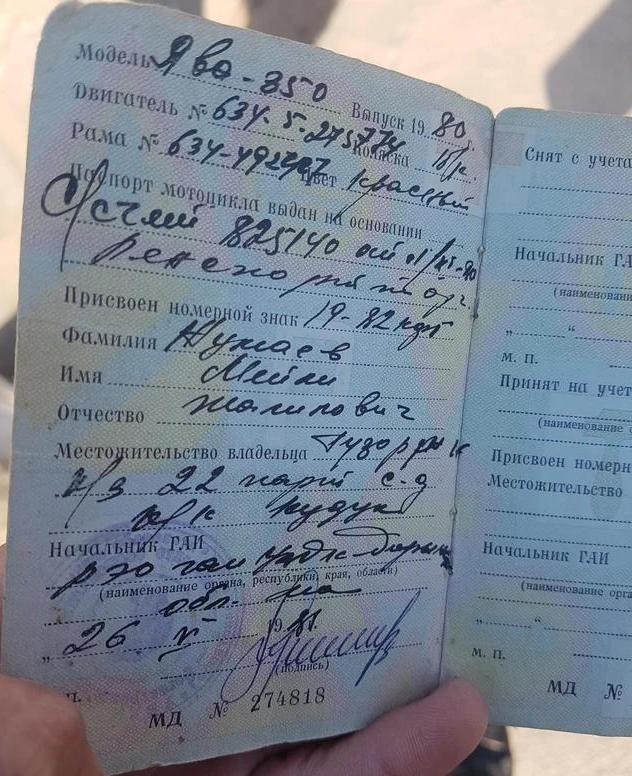 Модель Ява-350 Выпуск 19 80
Двигатель № 634-5-275774 Коляска б/к.
Рама № 634-492707 Цвет красный
Паспорт мотоцикла выдан на основании
825140
Присвоен номерной знак 19-82
Фамилия Жумаев
Имя Мейли
Отчество Жалилович
Местожительство владельца Гузор р-н
к/з 22 парт с-д
Начальник ГАИ
рэо гаи
(наименование органа, республики, края, области)
обл.
„ 26 V 1981
(подпись)
МД № 274818
Снят с учета
Начальник ГА
(наименовани
„ “
м. п.
Принят на учет
(наименование о
Присвоен номерн
Местожительство
Начальник ГАИ
(наименование орга
„ “
м. п.
МД №